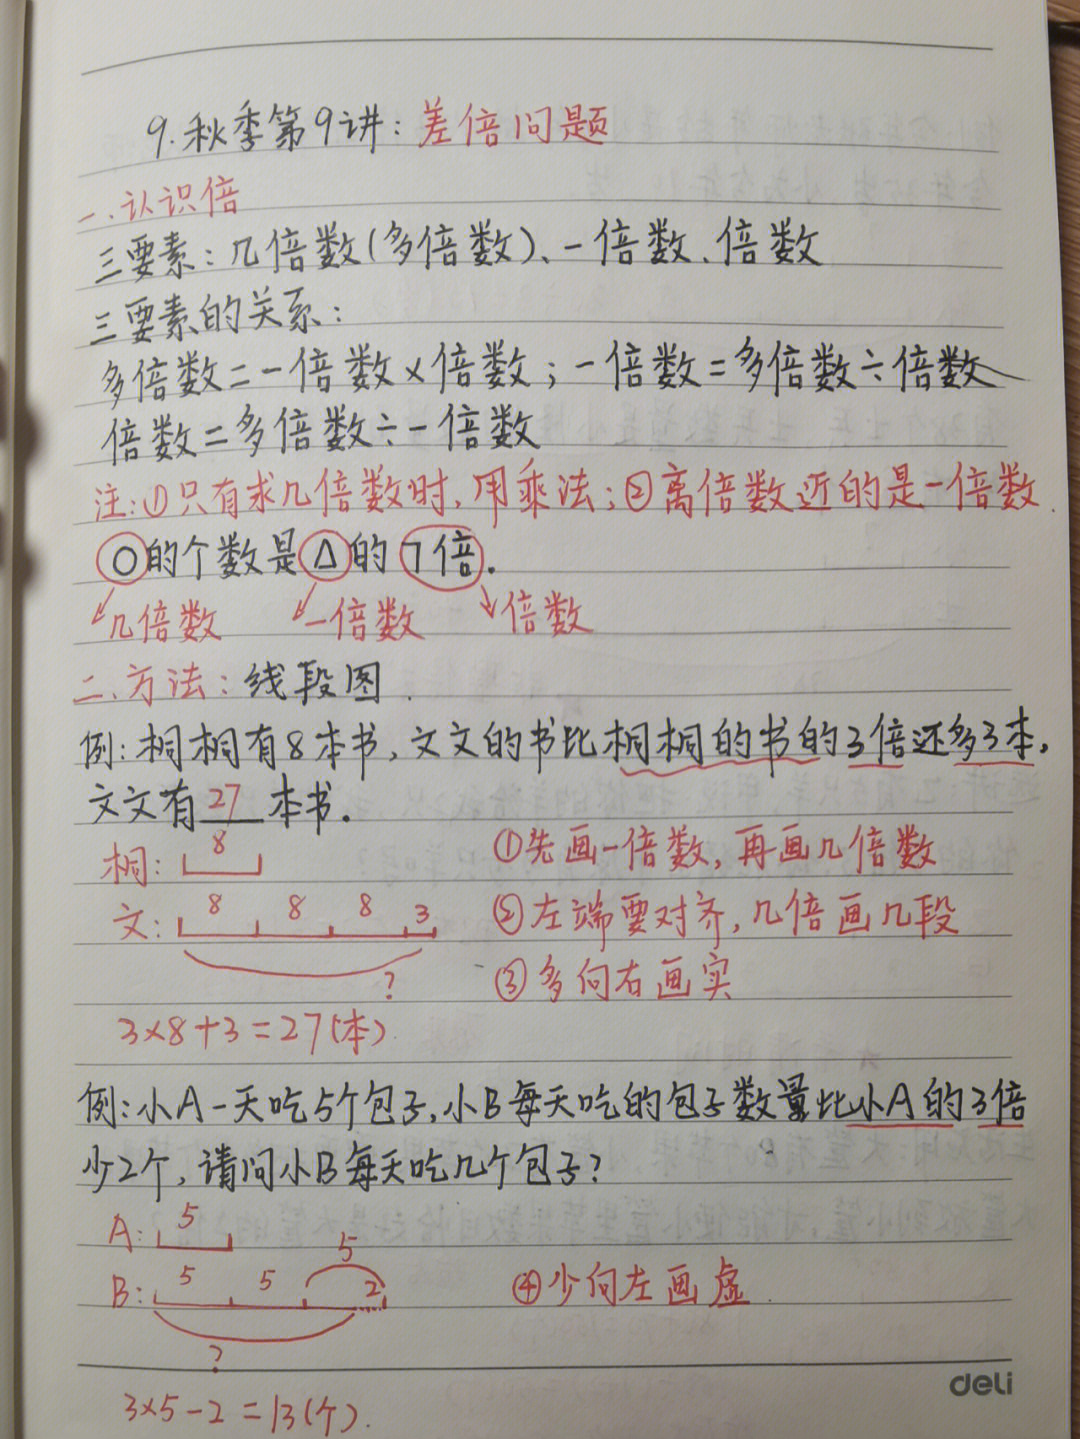 9.秋季第9讲:差倍问题
一.认识倍
三要素:几倍数(多倍数)、一倍数、倍数
三要素的关系:
多倍数=一倍数×倍数;一倍数=多倍数÷倍数
倍数=多倍数÷一倍数
注:①只有求几倍数时,用乘法;②离倍数近的是一倍数.
○的个数是△的7倍.
几倍数 一倍数 倍数
二.方法:线段图.
例:桐桐有8本书,文文的书比桐桐的书的3倍还多3本,
文文有27本书.
桐: 8
①先画一倍数,再画几倍数
文: 8 8 8 3
②左端要对齐,几倍画几段
?
③多向右画实
3×8+3=27(本)
例:小A一天吃5个包子,小B每天吃的包子数量比小A的3倍
少2个,请问小B每天吃几个包子?
A: 5
B: 5 5 5 2
④少向左画虚
?
3×5-2=13(个).
deli